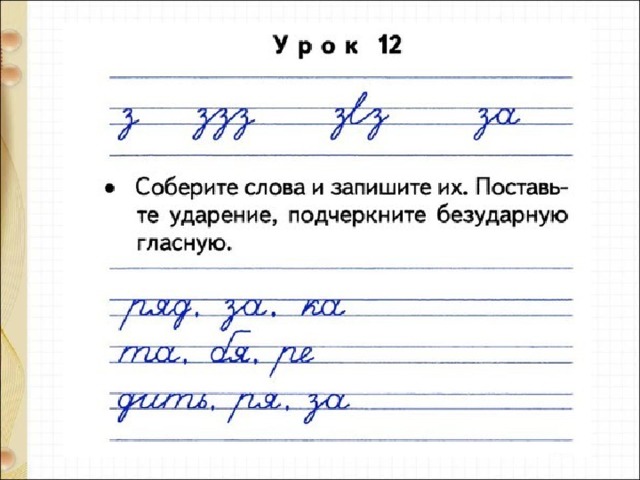 Урок 12
з ззз зlз за
• Соберите слова и запишите их. Поставь-
те ударение, подчеркните безударную
гласную.
ряд, за, ка
та, бя, ре
дить, ря, за